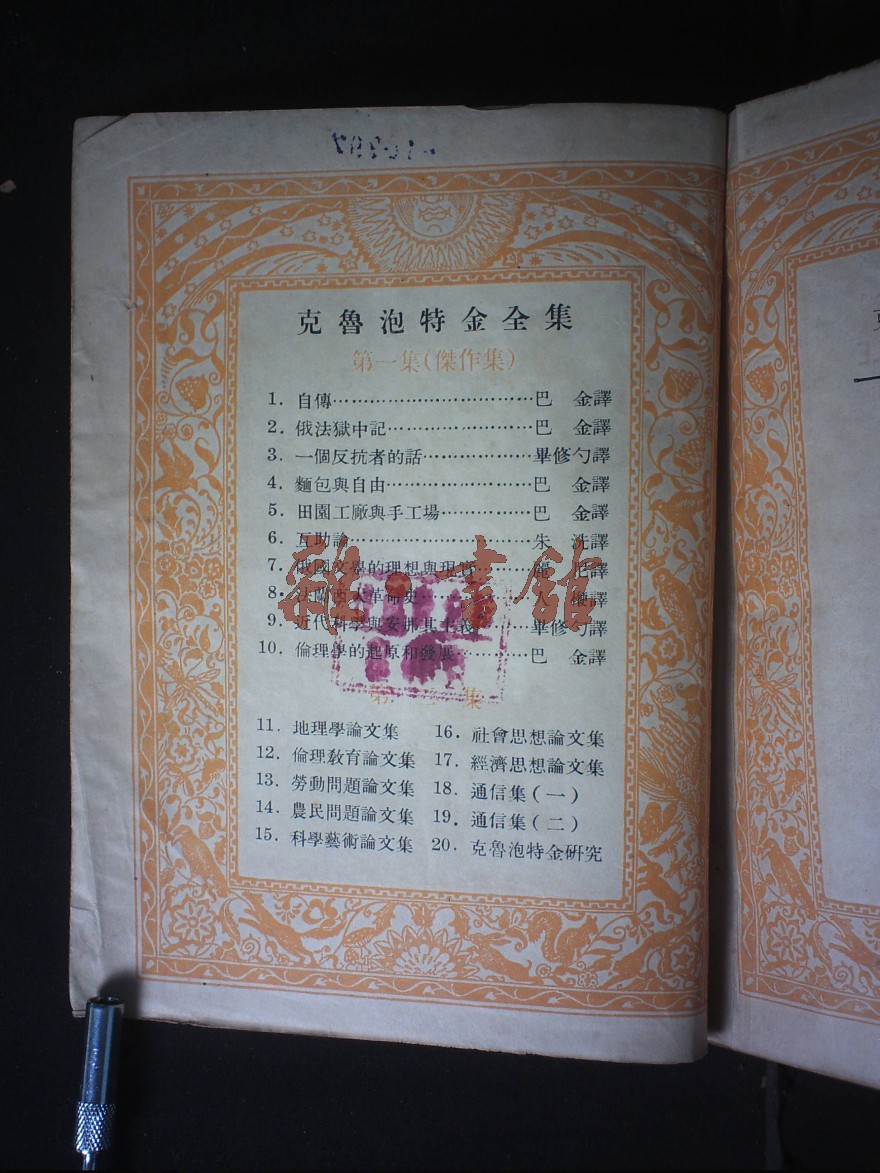 克魯泡特金全集
第一集(傑作集)
1. 自傳……………………………巴 金譯
2. 俄法獄中記……………………巴 金譯
3. 一個反抗者的話………………畢修勺譯
4. 麵包與自由……………………巴 金譯
5. 田園工廠與手工場……………巴 金譯
6. 互助論…………………………朱 洗譯
7. 俄國文學的理想與現實………麗 尼譯
8. 法蘭西大革命史……………… 譯
9. 近代科學與安那其主義………畢修勺譯
10. 倫理學的起原和發展…………巴 金譯
雜·書館
第 集
11. 地理學論文集
12. 倫理教育論文集
13. 勞動問題論文集
14. 農民問題論文集
15. 科學藝術論文集
16. 社會思想論文集
17. 經濟思想論文集
18. 通信集(一)
19. 通信集(二)
20. 克魯泡特金研究